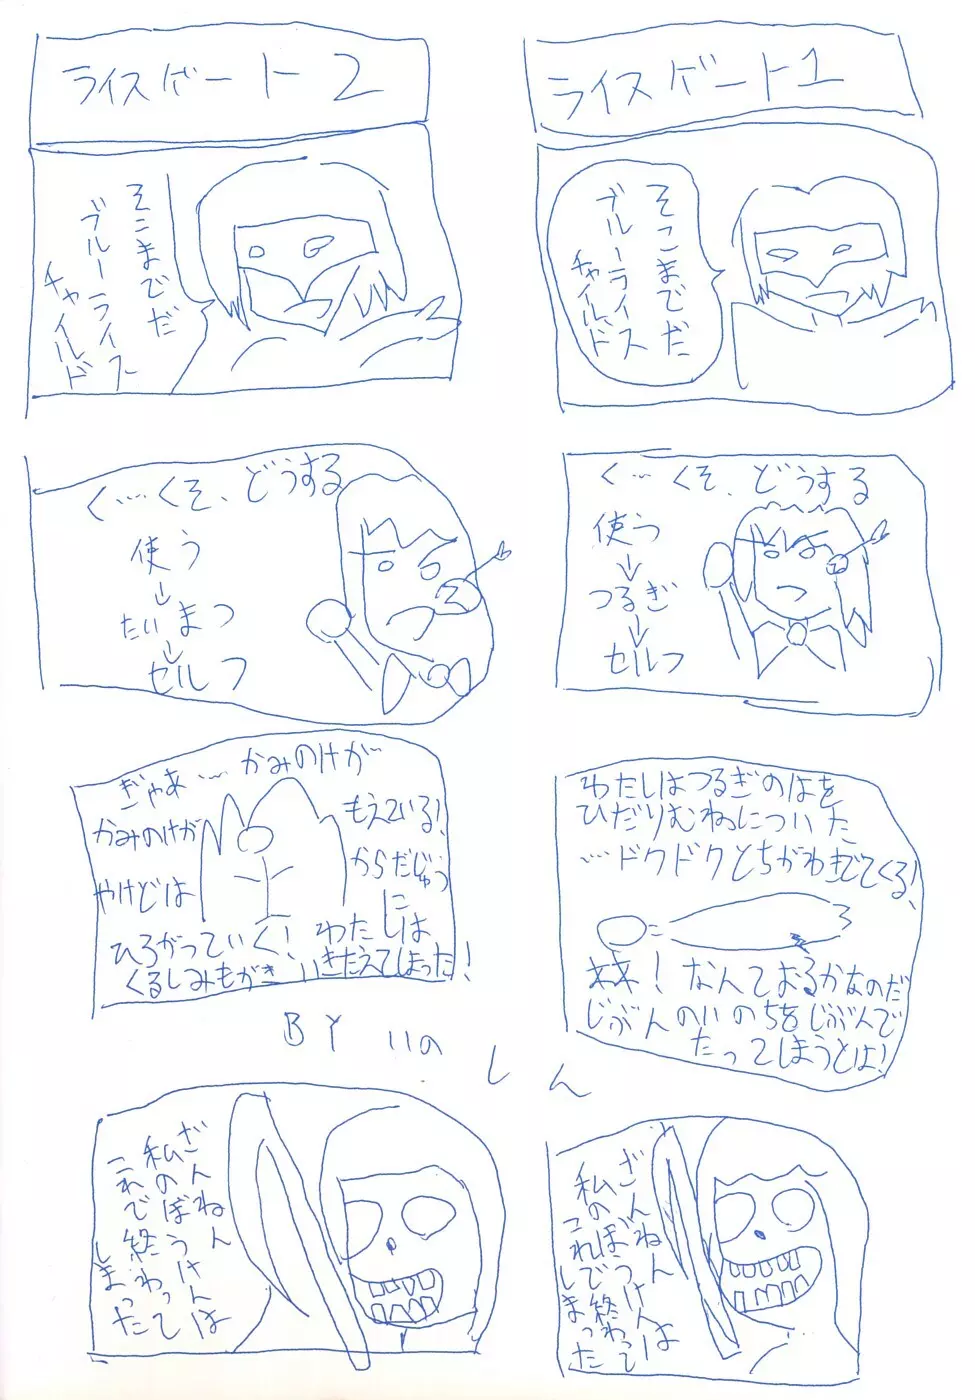 ライスゲート1
そこまでだ
ブルーライス
チャイルド
く…くそ、どうする
使う
↓
つるぎ
↓
セルフ
わたしはつるぎのはを
ひだりむねについた
…ドクドクとちがわきでてくる!
なんておろかなのだ
じぶんのいのちをじぶんで
たってしまうとは!
ざんねん
私のぼうけんは
これで終わって
しまった
ライスゲート2
そこまでだ
ブルーライス
チャイルド
く…くそ、どうする
使う
↓
たいまつ
↓
セルフ
ぎゃあ…かみのけが
かみのけがもえている!
やけどはからだじゅうに
ひろがっていく!わたしは
くるしみもがきいきたえてしまった!
ざんねん
私のぼうけんは
これで終わって
しまった
BY いのしん